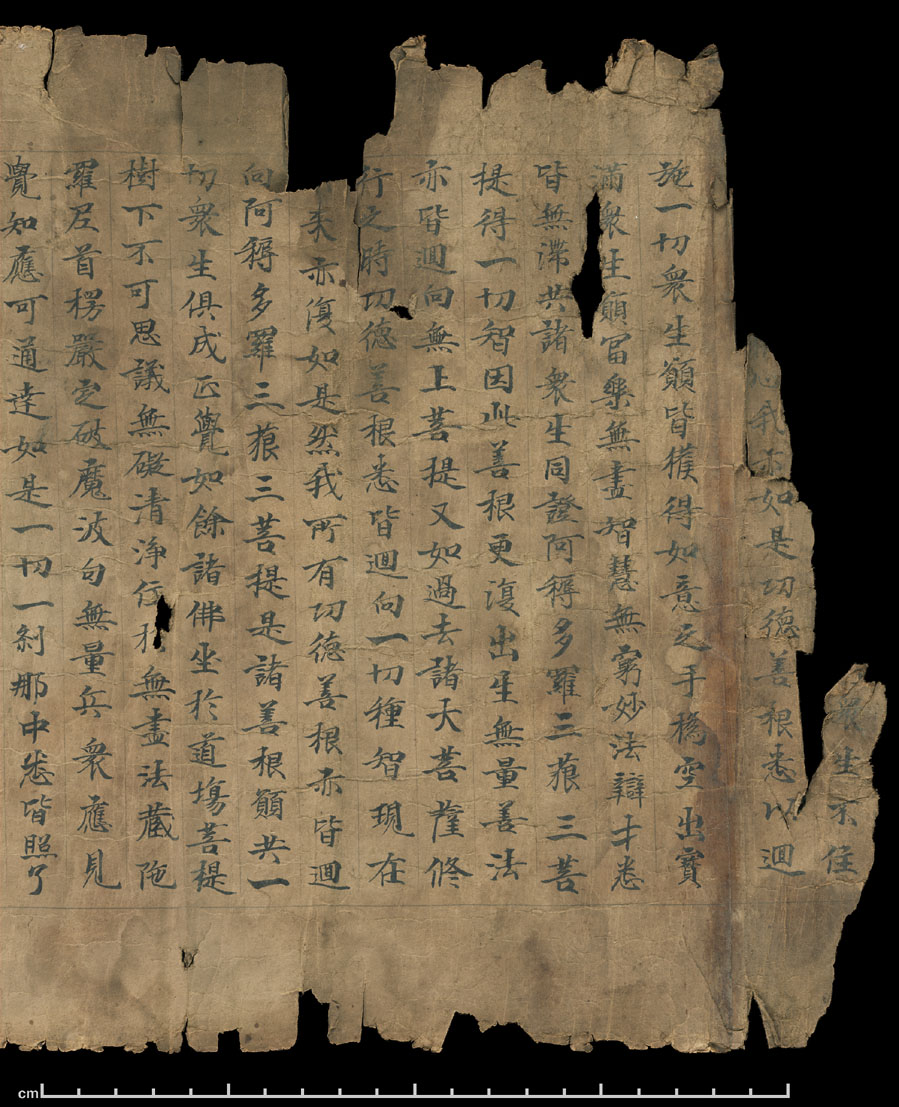 衆生不住
我亦如是功德善根悉以迴
施一切衆生願皆獲得如意之手撝空出寶
滿衆生願富樂無盡智慧無窮妙法辯才悉
皆無滯共諸衆生同證阿耨多羅三藐三菩
提得一切智因此善根更復出生無量善法
亦皆迴向無上菩提又如過去諸大菩薩修
行之時功德善根悉皆迴向一切種智現在
未來亦復如是然我所有功德善根亦皆迴
向阿耨多羅三藐三菩提是諸善根願共一
切衆生俱成正覺如餘諸佛坐於道場菩提
樹下不可思議無礙清淨住於無盡法藏陁
羅尼首楞嚴定破魔波旬無量兵衆應見
覺知應可通達如是一切一刹那中悉皆照了